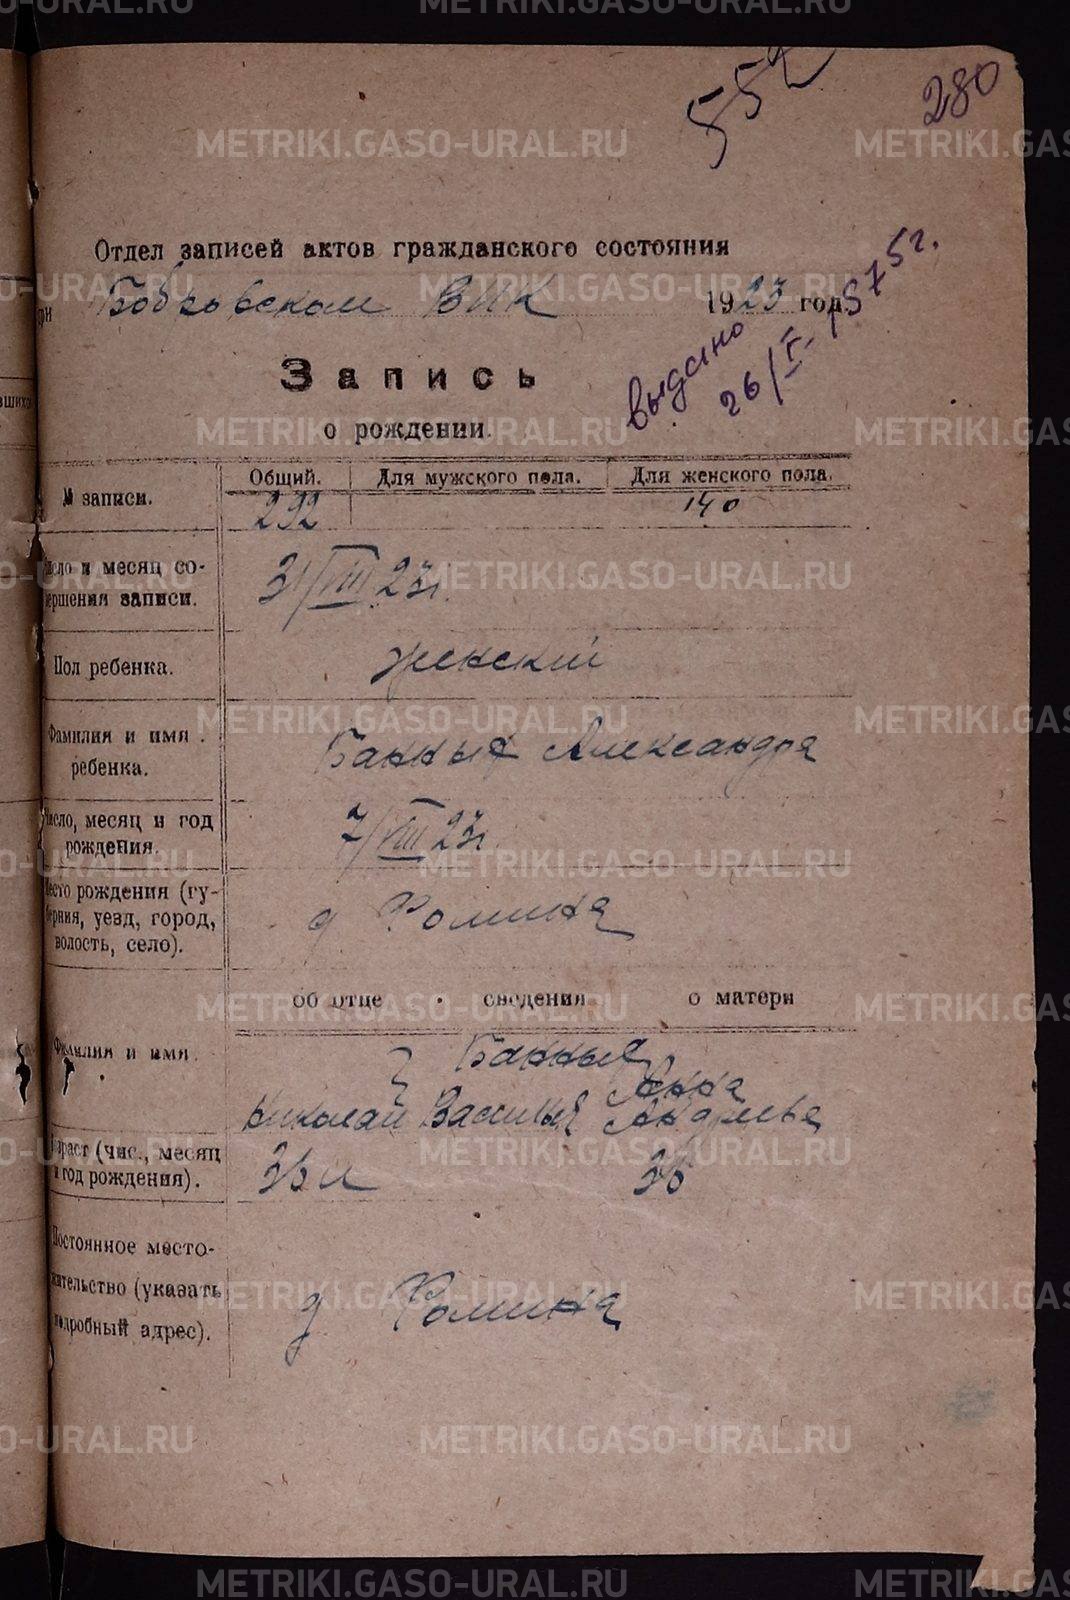 METRIKI.GASO-URAL.RU
552
280
Отдел записей актов гражданского состояния
Бобровском ВИК 1923 год.
выдано
26/V-1975г.
Запись
о рождении.
№ записи.
Общий. Для мужского пола. Для женского пола.
292 140
Число и месяц со-
вершения записи.
31/VIII 23г.
Пол ребенка.
женский
Фамилия и имя
ребенка.
Банных Александра
Число, месяц и год
рождения.
7/VIII 23г.
Место рождения (гу-
берния, уезд, город,
волость, село).
д Фомина
об отце сведения о матери
Фамилия и имя.
Банных
Анна
Николай Андреевна
Возраст (чис., месяц
и год рождения).
36 36
Постоянное место-
жительство (указать
подробный адрес).
д Фомина